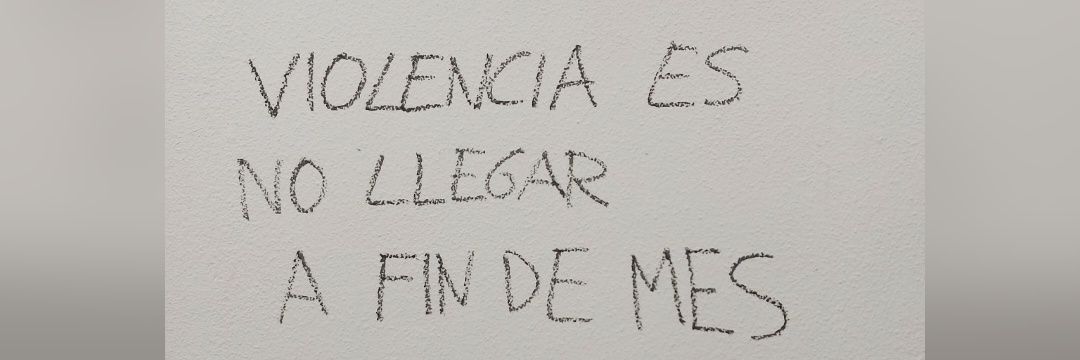 VIOLENCIA ES
NO LLEGAR
A FIN DE MES